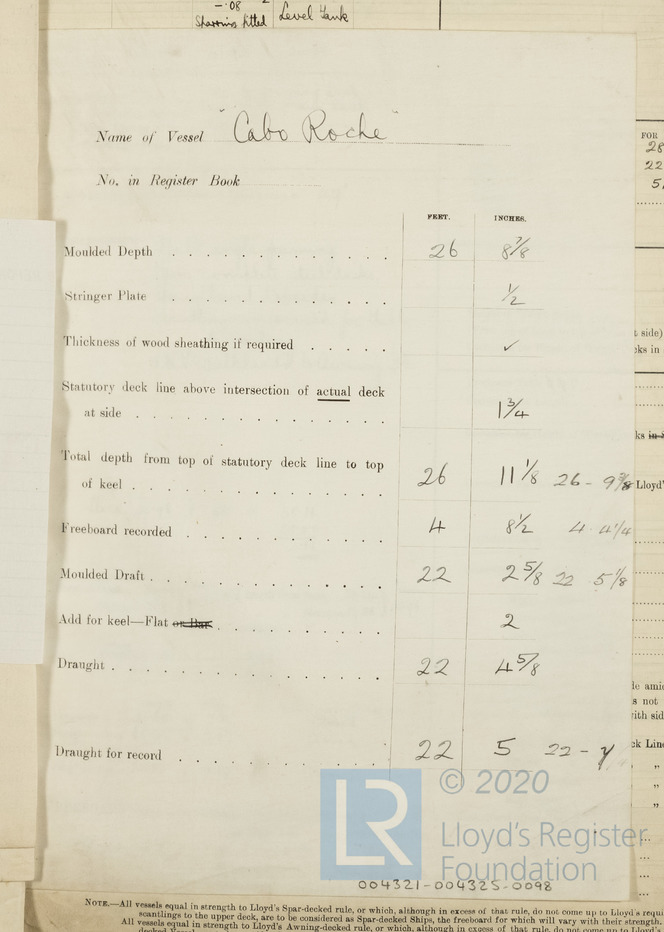 -.08
Sparring fitted Level Tank
Name of Vessel "Cabo Roche"
No. in Register Book
FEET. INCHES.
Moulded Depth 26 8 7/8
Stringer Plate 1/2
Thickness of wood sheathing if required ✓
Statutory deck line above intersection of actual deck
at side 1 3/4
Total depth from top of statutory deck line to top
of keel 26 11 1/8 26 - 9 3/8
Freeboard recorded 4 8 1/2 4 4 1/4
Moulded Draft 22 2 5/8 22 5 1/8
Add for keel—Flat or Bar 2
Draught 22 4 5/8
Draught for record 22 5 22 - 7
FOR
28
22
5
t side)
cks in
Lloyd'
ith sid
ck Line
© 2020
LR
Lloyd's Register
Foundation
004321-004325-0098
NOTE.—All vessels equal in strength to Lloyd's Spar-decked rule, or which, although in excess of that rule, do not come up to Lloyd's requi
scantlings to the upper deck, are to be considered as Spar-decked Ships, the freeboard for which will vary with their strength.
All vessels equal in strength to Lloyd's Awning-decked rule, or which, although in excess of that rule, do not come up to Lloyd's